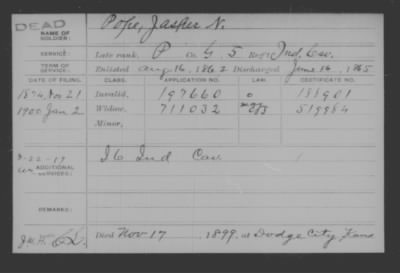 DEAD
NAME OF SOLDIER: Pope, Jasper N.
SERVICE: Late rank, P Co. G, 5 Reg't Ind. Cav.
TERM OF SERVICE: Enlisted Aug 16, 1862 Discharged June 16, 1865
DATE OF FILING. CLASS. APPLICATION NO. LAW. CERTIFICATE NO.
1874, Nov 21 Invalid, 197660 o 138901
1900 Jan 2 Widow, 711032 519984
Minor,
ADDITIONAL SERVICES: 16 Ind Cav
REMARKS:
Died Nov 17, 1899, at Dodge City, Kans